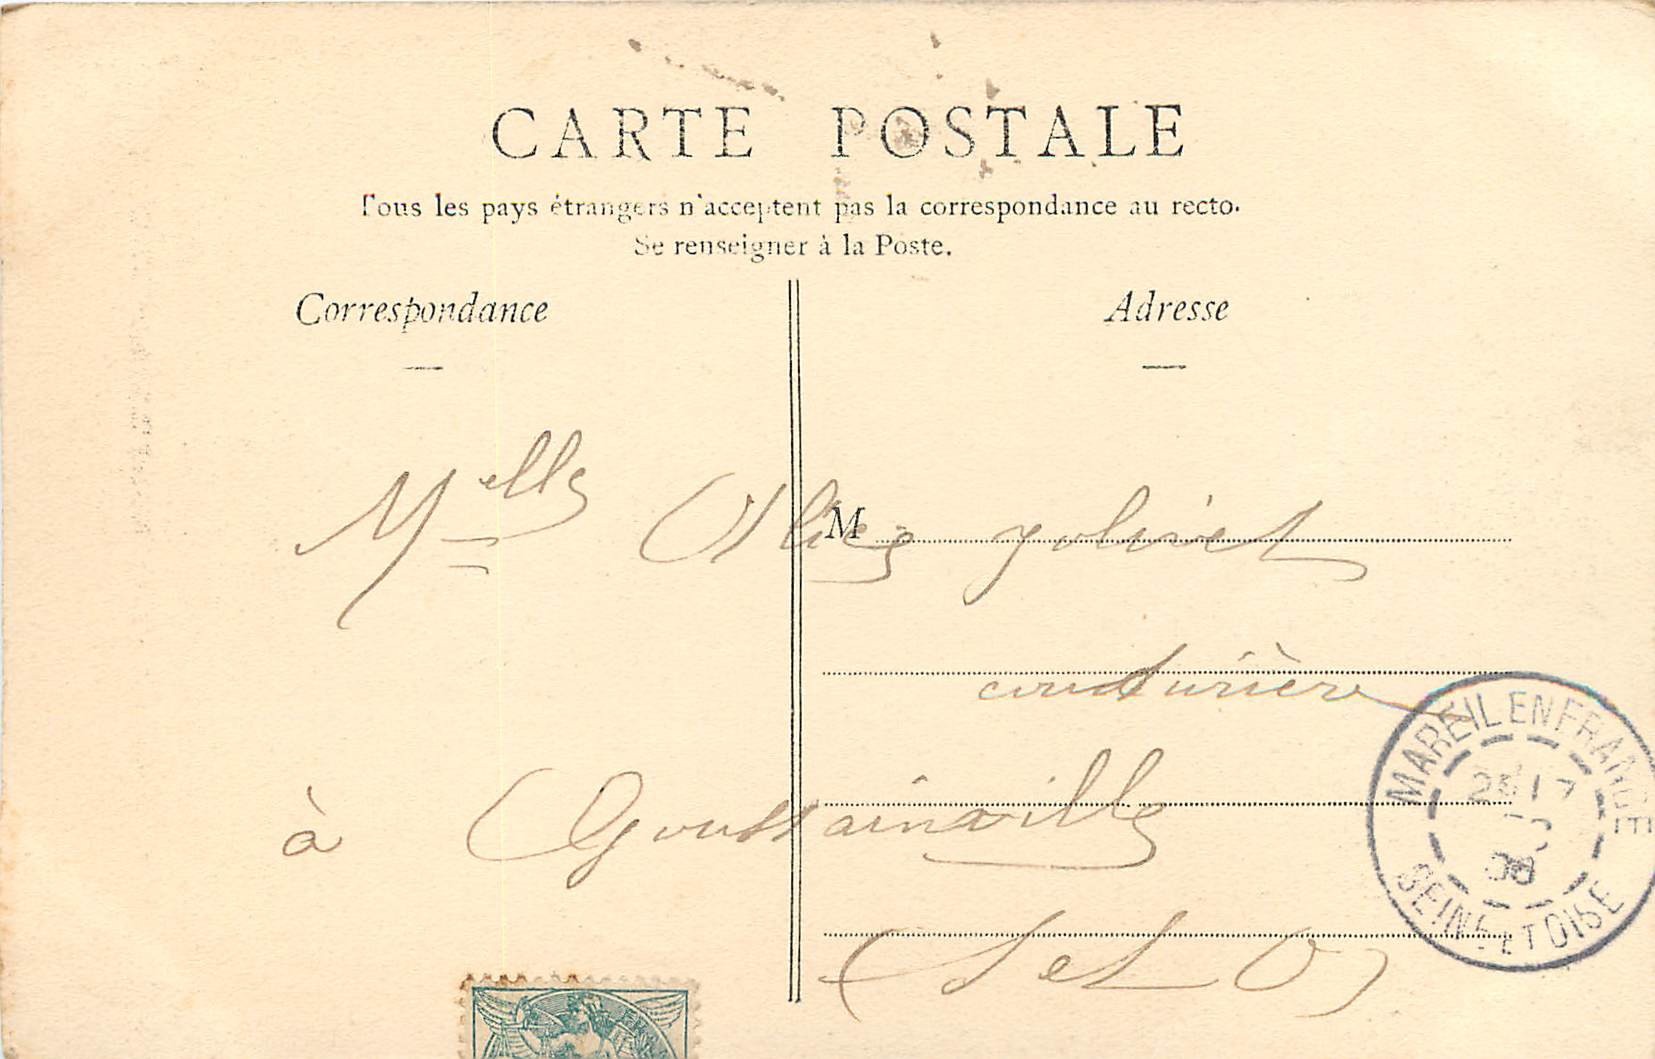 CARTE POSTALE
Tous les pays étrangers n'acceptent pas la correspondance au recto.
Se renseigner à la Poste.
Correspondance
Adresse
M
Melle Alice Jolivet
couturière
à Goussainville
(S et O)
MAREIL EN FRANCE
SEINE ET OISE